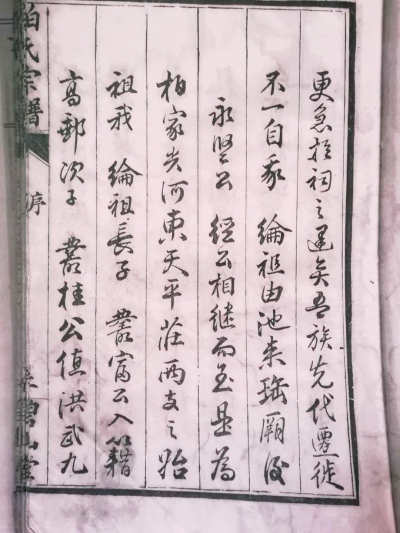 更急於祠之建矣吾族先代遷徙
不一自我 綸祖由池來瑤厥後
永堅公 經公相繼而至是為
柏家岕河東天平莊兩支之始
祖我 綸祖長子 叢富公入籍
高郵次子 叢桂公值洪武九
柏氏宗譜
序
碧山堂